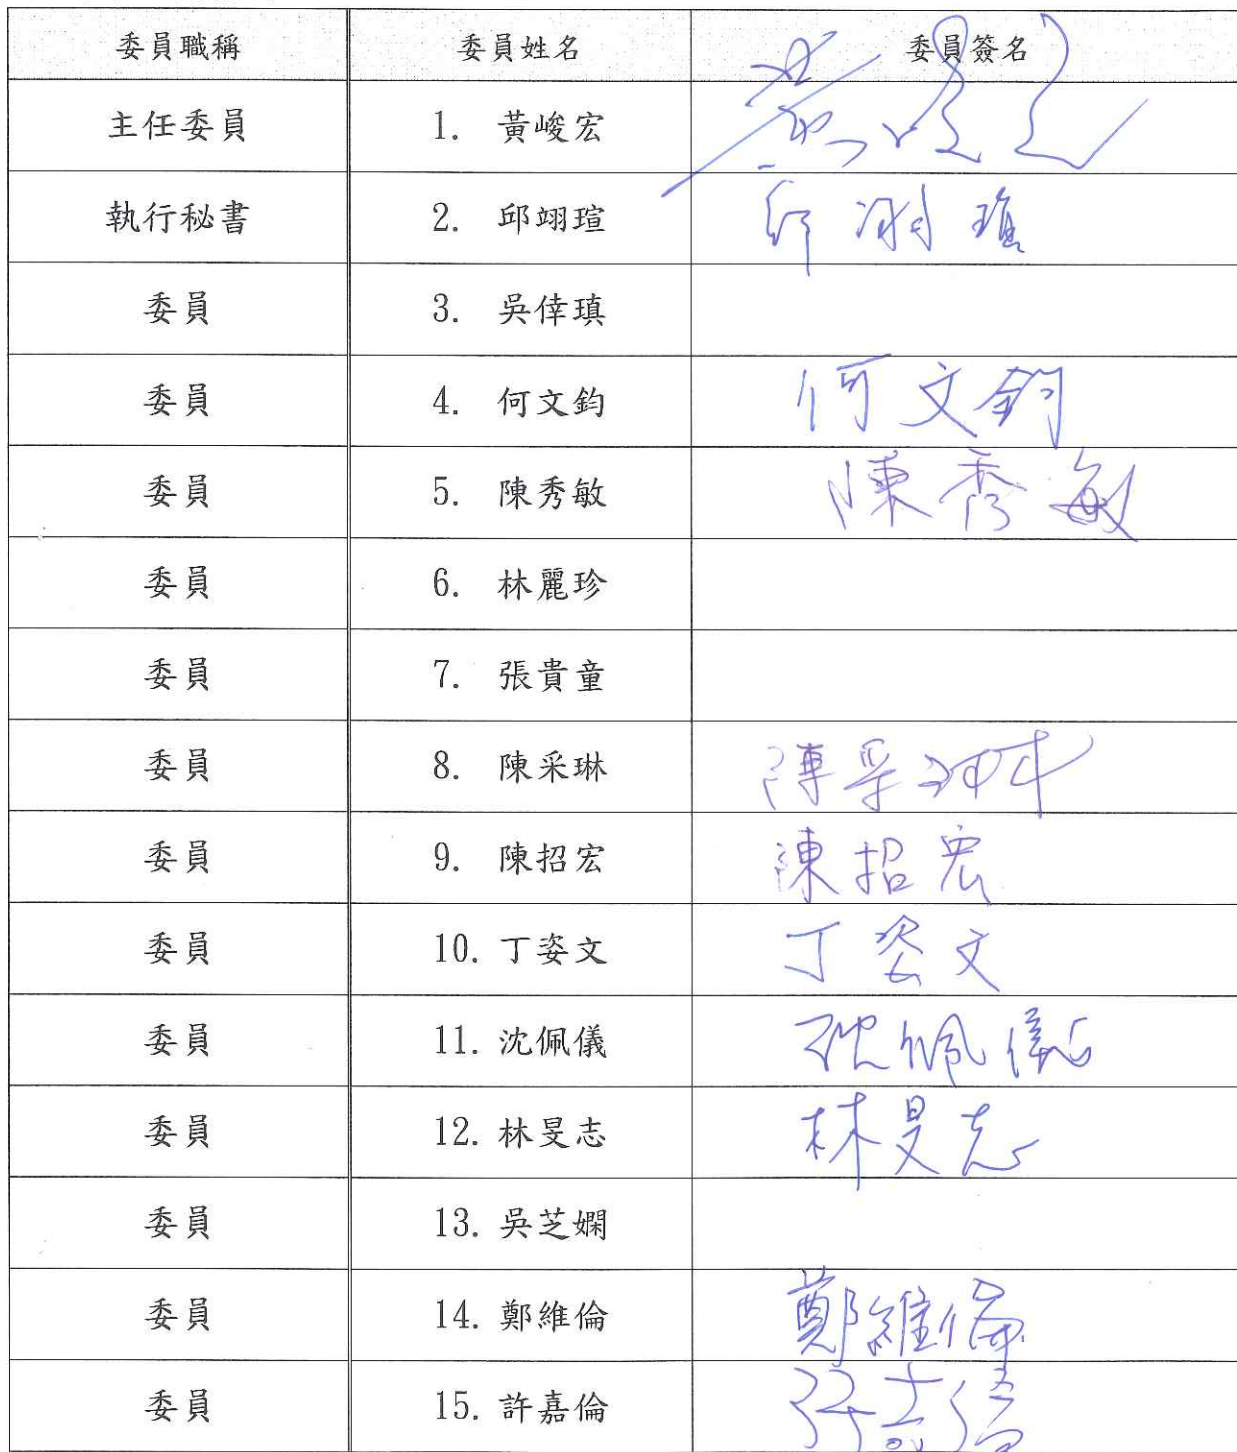 委員職稱 委員姓名 委員簽名
主任委員 1. 黃峻宏 黃峻宏
執行秘書 2. 邱翊瑄 邱翊瑄
委員 3. 吳倖瑱
委員 4. 何文鈞 何文鈞
委員 5. 陳秀敏 陳秀敏
委員 6. 林麗珍
委員 7. 張貴童
委員 8. 陳采琳 陳采琳
委員 9. 陳招宏 陳招宏
委員 10. 丁姿文 丁姿文
委員 11. 沈佩儀 沈佩儀
委員 12. 林旻志 林旻志
委員 13. 吳芝嫻
委員 14. 鄭維倫 鄭維倫
委員 15. 許嘉倫 許嘉倫